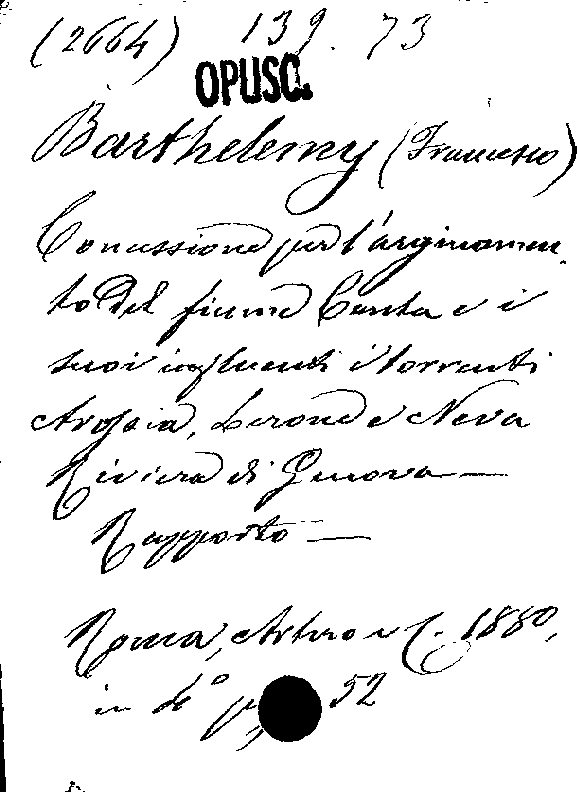 (2664) 139. 73
OPUSC.
Barthelemy (Francesco)
Concessione per l'arginamen-
to del fiume Centa e i
suoi influenti i torrenti
Arossia, Lerone e Neva
Riviera di Genova —
Rapporto —
Roma, Artero e C. 1880,
in 4° p. 52